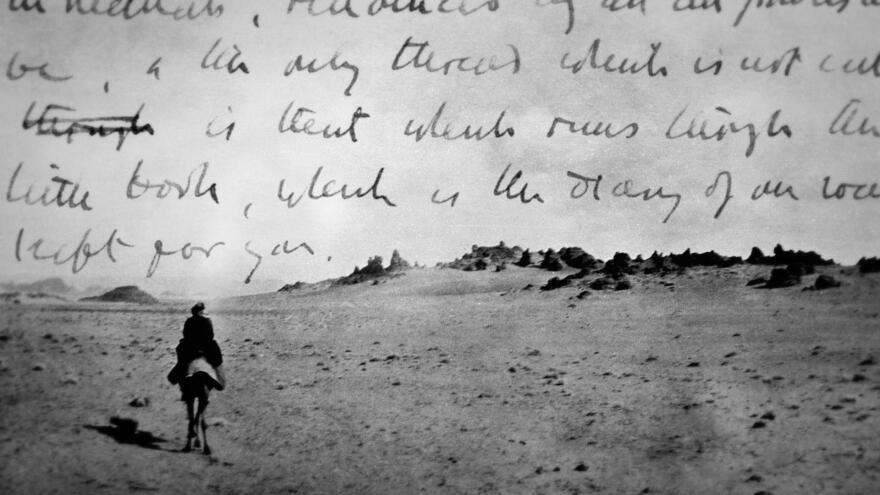 & the only thread which is not cut
through is that which runs through this
little book, which is the diary of my way
kept for you.